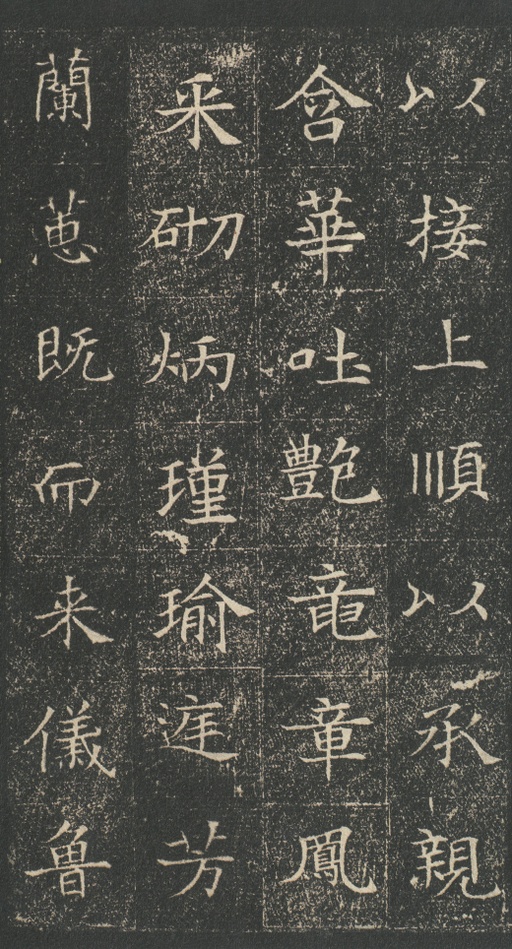 以接上順以承親
含華吐艶竜章鳳
采砌炳瑾瑜庭芳
蘭蕙既而来儀魯